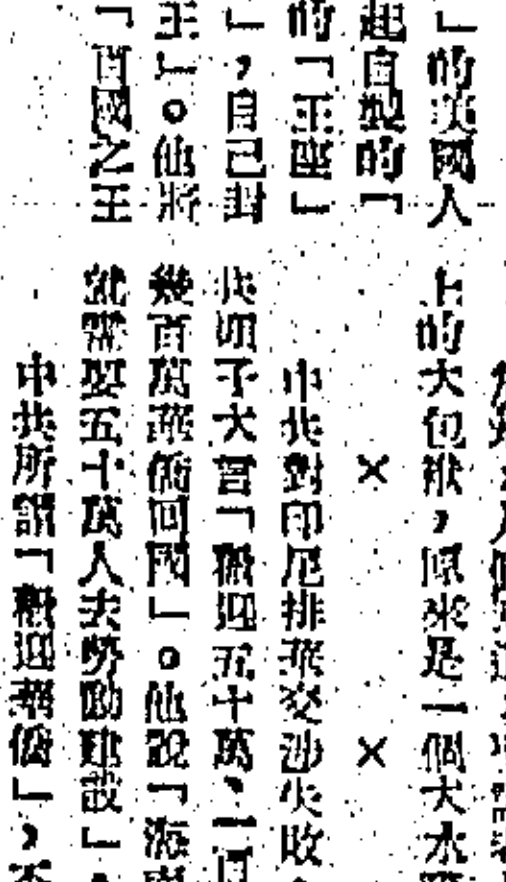 」的美國人
起自製的「
的「王座」
」，自己封
王」。他將
「百國之王
上的大包袱，原來是一個大水
× ×
中共對印尼排華交涉失敗
共頭子大言「歡迎五十萬、一百
幾百萬華僑回國」。他說「海
就需要五十萬人去勞動建設」，
中共所謂「歡迎華僑」，